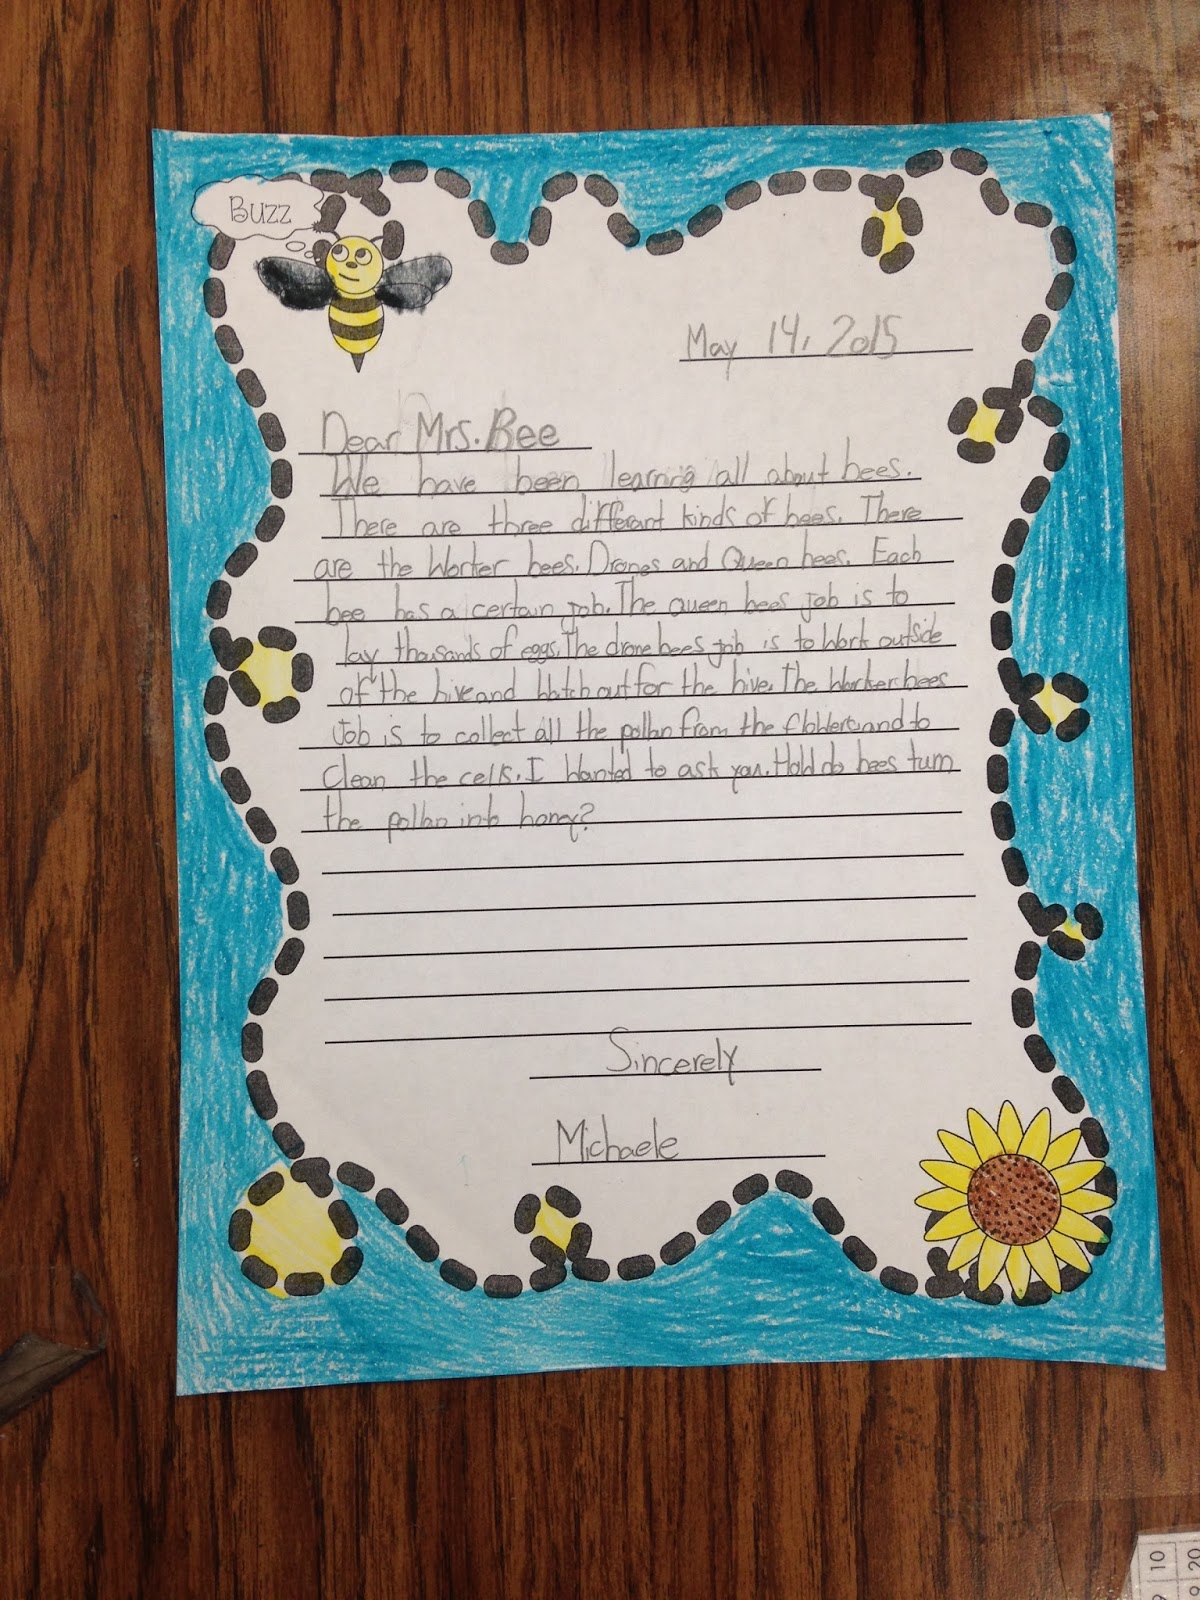 Buzz
May 14, 2015
Dear Mrs. Bee
We have been learning all about bees.
There are three different kinds of bees. There
are the Worker bees. Drones and Queen bees. Each
bee has a certain job. The queen bees job is to
lay thousands of eggs. The drone bees job is to work outside
of the hive and Watch out for the hive. The Worker bees
Job is to collect all the pollan from the flowers and to
clean the cells. I Wanted to ask you. How do bees turn
the pollan into honey?
Sincerely
Michaele
10
9 20